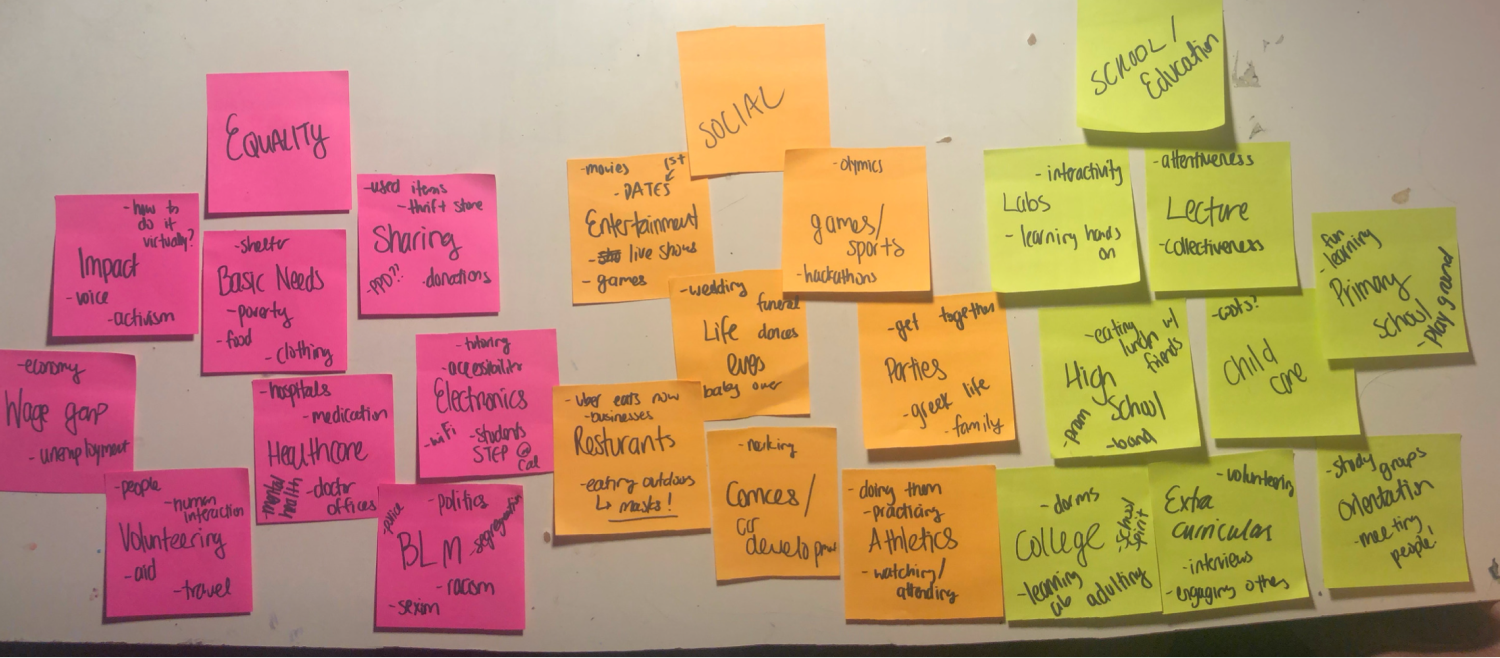 EQUALITY
- how to
do it
virtually?
Impact
- voice
- activism
- shelter
Basic Needs
- poverty
- food
- clothing
- used items
- thrift store
Sharing
- PPD?!
- donations
- economy
Wage gap
- unemployment
- hospitals
- medication
Healthcare
- doctor
offices
health
- tutoring
- accessibility
Electronics
- wiFi
- students
STEP @
Cal
- people
- human
interaction
Volunteering
- aid
- travel
- politics
- police
- segregation
BLM
- racism
- sexism
SOCIAL
- movies
1st
- DATES
Entertainment
- live shows
- games
- olymics
games/
sports
- hackathons
- wedding
funeral
Life dances
baby over
- get together
Parties
- greek life
- family
- uber eats now
- businesses
Resturants
- eating outdoors
↳ masks!
develop
- doing them
- practicing
Athletics
- watching/
attending
SCHOOL/
Education
- interactivity
Labs
- learning hands
on
- attentiveness
Lecture
- collectiveness
fun
- learning
Primary
School
- play ground
- eating
lunch w/
friends
High
School
- prom
- band
- costs?
Child
care
- dorms
College
- School
spirit
- learning
adulting
- volunteering
Extra
curricular
- interviews
- engaging others
- study groups
Orientation
- meeting
people